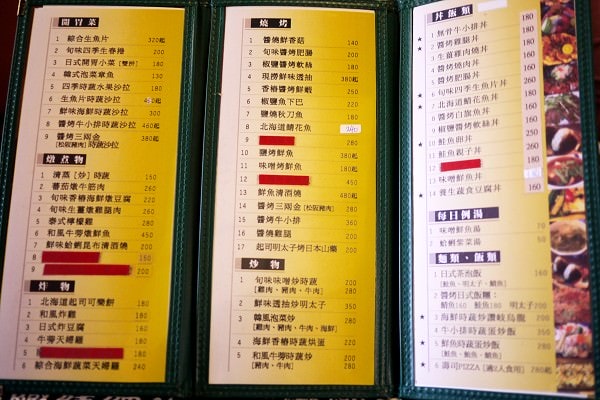 開胃菜
1 綜合生魚片 320起
2 旬味四季生春捲
3 日式開胃小菜 [雙拼] 180
4 韓式泡菜章魚 150
5 四季時蔬水果沙拉 180
6 生魚片時蔬沙拉
7 鮮味海鮮時蔬沙拉 380起
8 醬烤牛小排時蔬沙拉 460起
9 醬烤三兩金 380起
[松阪豬肉] 時蔬沙拉
燉煮物
1 清蒸 (炒) 時蔬 150
2 蕃茄燉牛筋肉 260
3 旬味香椿海鮮燉豆腐 240
4 旬味生薑燉雞腿肉 240
5 泰式檸檬雞 280
6 和風牛蒡燉鮮魚 450
7 鮮味蛤蜊昆布清酒燒 200
8 150
9 200
炸物
1 北海道起司可樂餅 180
2
3 日式炸豆腐
4 牛蒡天婦羅 180
5
6 綜合海鮮蔬菜天婦羅 240
燒烤
1 醬燒鮮香菇 140
2 旬味醬烤肥腸 200
3 椒鹽醬烤軟絲 180
4 現撈鮮味透抽 380起
5 香椿醬烤鮮蝦 350
6 椒鹽魚下巴 220
7 鹽燒秋刀魚 180
8 北海道鯖花魚
9 280
10 鹽烤鮮魚 380起
11 味噌烤鮮魚 380起
12 450起
13 鮮魚清酒燒 480起
14 醬烤三兩金 [松阪豬肉] 280
15 醬烤牛小排 360
16 醬燒雞腿 280
17 起司明太子烤日本山藥 240
炒物
1 旬味味噌炒時蔬 200
[雞肉、豬肉、牛肉]
2 鮮味透抽炒明太子 350
3 韓風泡菜炒 240
[雞肉、豬肉、牛肉、海鮮]
4 海鮮香椿時蔬烘蛋 220
5 和風牛蒡時蔬炒 200
[豬肉、牛肉]
丼飯類
★ 1 無骨牛小排丼 180
2 醬烤雞腿丼 180
★ 3 生薑雞肉燒丼 180
4 醬燒燒肉丼 160
5 醬烤肥腸丼 160
★ 6 旬味四季生魚丼
★ 7 北海道鯖花魚丼
8 醬烤白旗魚丼
9 椒鹽醬烤軟絲丼 180
★ 10 鮭魚卵丼
11 鮭魚親子丼
12 180
13 味噌鮮魚丼 180
14 養生蔬食豆腐丼 160
每日例湯
1 味噌鮮魚湯 70
2 蛤蜊紫菜湯 200
麵類、飯類
1 日式茶泡飯 160
[鮭魚、明太子、鯛魚]
2 醬烤日式飯糰：
鯖魚160 鮭魚180 明太子200
★ 3 海鮮時蔬炒讚岐烏龍 200
★ 4 牛小排時蔬蛋炒飯 180
★ 5 鮮魚時蔬蛋炒飯 180
[鮭魚、鮪魚、鯛魚]
★ 6 壽司PIZZA [適2人食用] 280